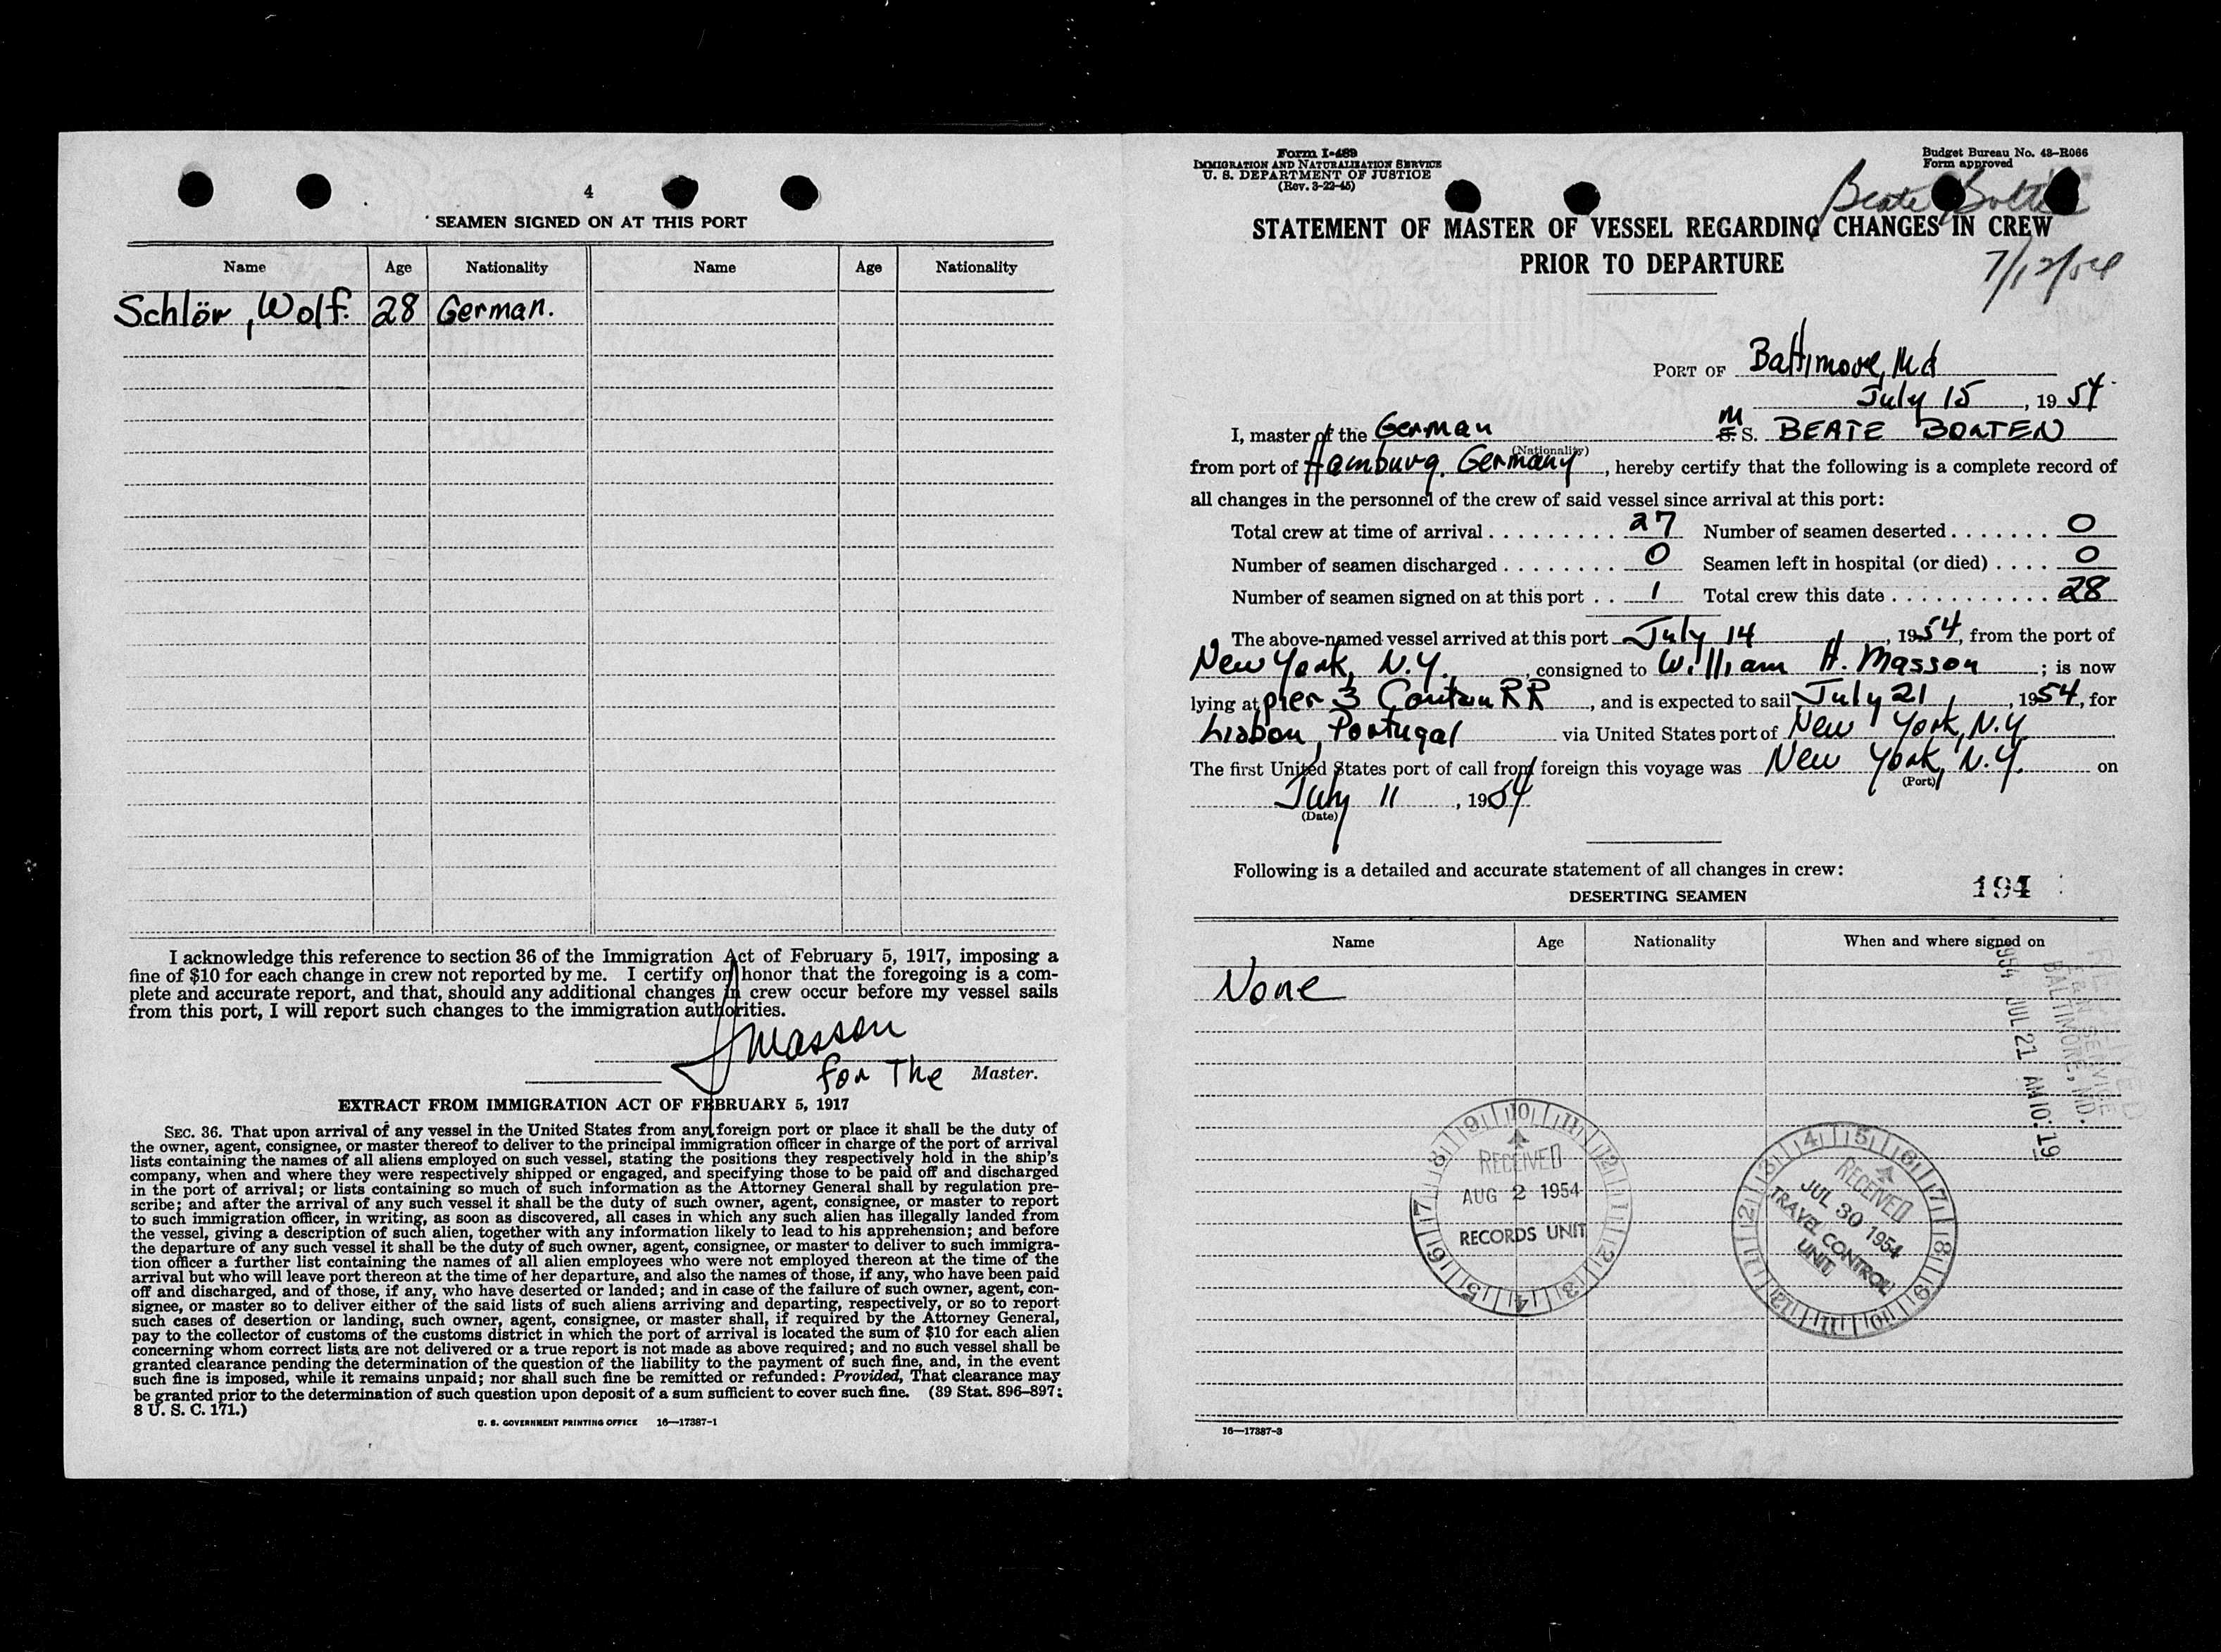 4
SEAMEN SIGNED ON AT THIS PORT
Name Age Nationality Name Age Nationality
Schlör, Wolf. 28 German.
I acknowledge this reference to section 36 of the Immigration Act of February 5, 1917, imposing a
fine of $10 for each change in crew not reported by me. I certify on honor that the foregoing is a com-
plete and accurate report, and that, should any additional changes in crew occur before my vessel sails
from this port, I will report such changes to the immigration authorities.
Masson
for The Master.
EXTRACT FROM IMMIGRATION ACT OF FEBRUARY 5, 1917
SEC. 36. That upon arrival of any vessel in the United States from any foreign port or place it shall be the duty of
the owner, agent, consignee, or master thereof to deliver to the principal immigration officer in charge of the port of arrival
lists containing the names of all aliens employed on such vessel, stating the positions they respectively hold in the ship's
company, when and where they were respectively shipped or engaged, and specifying those to be paid off and discharged
in the port of arrival; or lists containing so much of such information as the Attorney General shall by regulation pre-
scribe; and after the arrival of any such vessel it shall be the duty of such owner, agent, consignee, or master to report
to such immigration officer, in writing, as soon as discovered, all cases in which any such alien has illegally landed from
the vessel, giving a description of such alien, together with any information likely to lead to his apprehension; and before
the departure of any such vessel it shall be the duty of such owner, agent, consignee, or master to deliver to such immigra-
tion officer a further list containing the names of all alien employees who were not employed thereon at the time of the
arrival but who will leave port thereon at the time of her departure, and also the names of those, if any, who have been paid
off and discharged, and of those, if any, who have deserted or landed; and in case of the failure of such owner, agent, con-
signee, or master so to deliver either of the said lists of such aliens arriving and departing, respectively, or so to report
such cases of desertion or landing, such owner, agent, consignee, or master shall, if required by the Attorney General,
pay to the collector of customs of the customs district in which the port of arrival is located the sum of $10 for each alien
concerning whom correct lists are not delivered or a true report is not made as above required; and no such vessel shall be
granted clearance pending the determination of the question of the liability to the payment of such fine, and, in the event
such fine is imposed, while it remains unpaid; nor shall such fine be remitted or refunded: Provided, That clearance may
be granted prior to the determination of such question upon deposit of a sum sufficient to cover such fine. (39 Stat. 896-897;
8 U. S. C. 171.)
U. S. GOVERNMENT PRINTING OFFICE 16—17387-1
Form I-489
IMMIGRATION AND NATURALIZATION SERVICE
U. S. DEPARTMENT OF JUSTICE
(Rev. 3-22-45)
Budget Bureau No. 43-R066
Form approved
Beate Bolten
STATEMENT OF MASTER OF VESSEL REGARDING CHANGES IN CREW
PRIOR TO DEPARTURE
7/12/54
PORT OF Baltimore, Md
July 15, 1954
I, master of the German M S. S. BEATE BOLTEN
(Nationality)
from port of Hamburg, Germany, hereby certify that the following is a complete record of
all changes in the personnel of the crew of said vessel since arrival at this port:
Total crew at time of arrival . . . . . . . . . 27 Number of seamen deserted . . . . . . . 0
Number of seamen discharged . . . . . . . . 0 Seamen left in hospital (or died) . . . . 0
Number of seamen signed on at this port . . 1 Total crew this date . . . . . . . . . . . 28
The above-named vessel arrived at this port July 14, 1954, from the port of
New York, N.Y., consigned to William H. Masson; is now
lying at pier 3 Canton RR, and is expected to sail July 21, 1954, for
Lisbon, Portugal via United States port of New York, N.Y.
The first United States port of call from foreign this voyage was New York, N.Y. on
(Port)
July 11, 1954
(Date)
Following is a detailed and accurate statement of all changes in crew:
194
DESERTING SEAMEN
Name Age Nationality When and where signed on
None
RECEIVED
I & N SERVICE
BALTIMORE, MD.
1954 JUL 21 AM 10:19
RECEIVED
AUG 2 1954
RECORDS UNIT
RECEIVED
JUL 30 1954
TRAVEL CONTROL
UNIT
16—17387-3